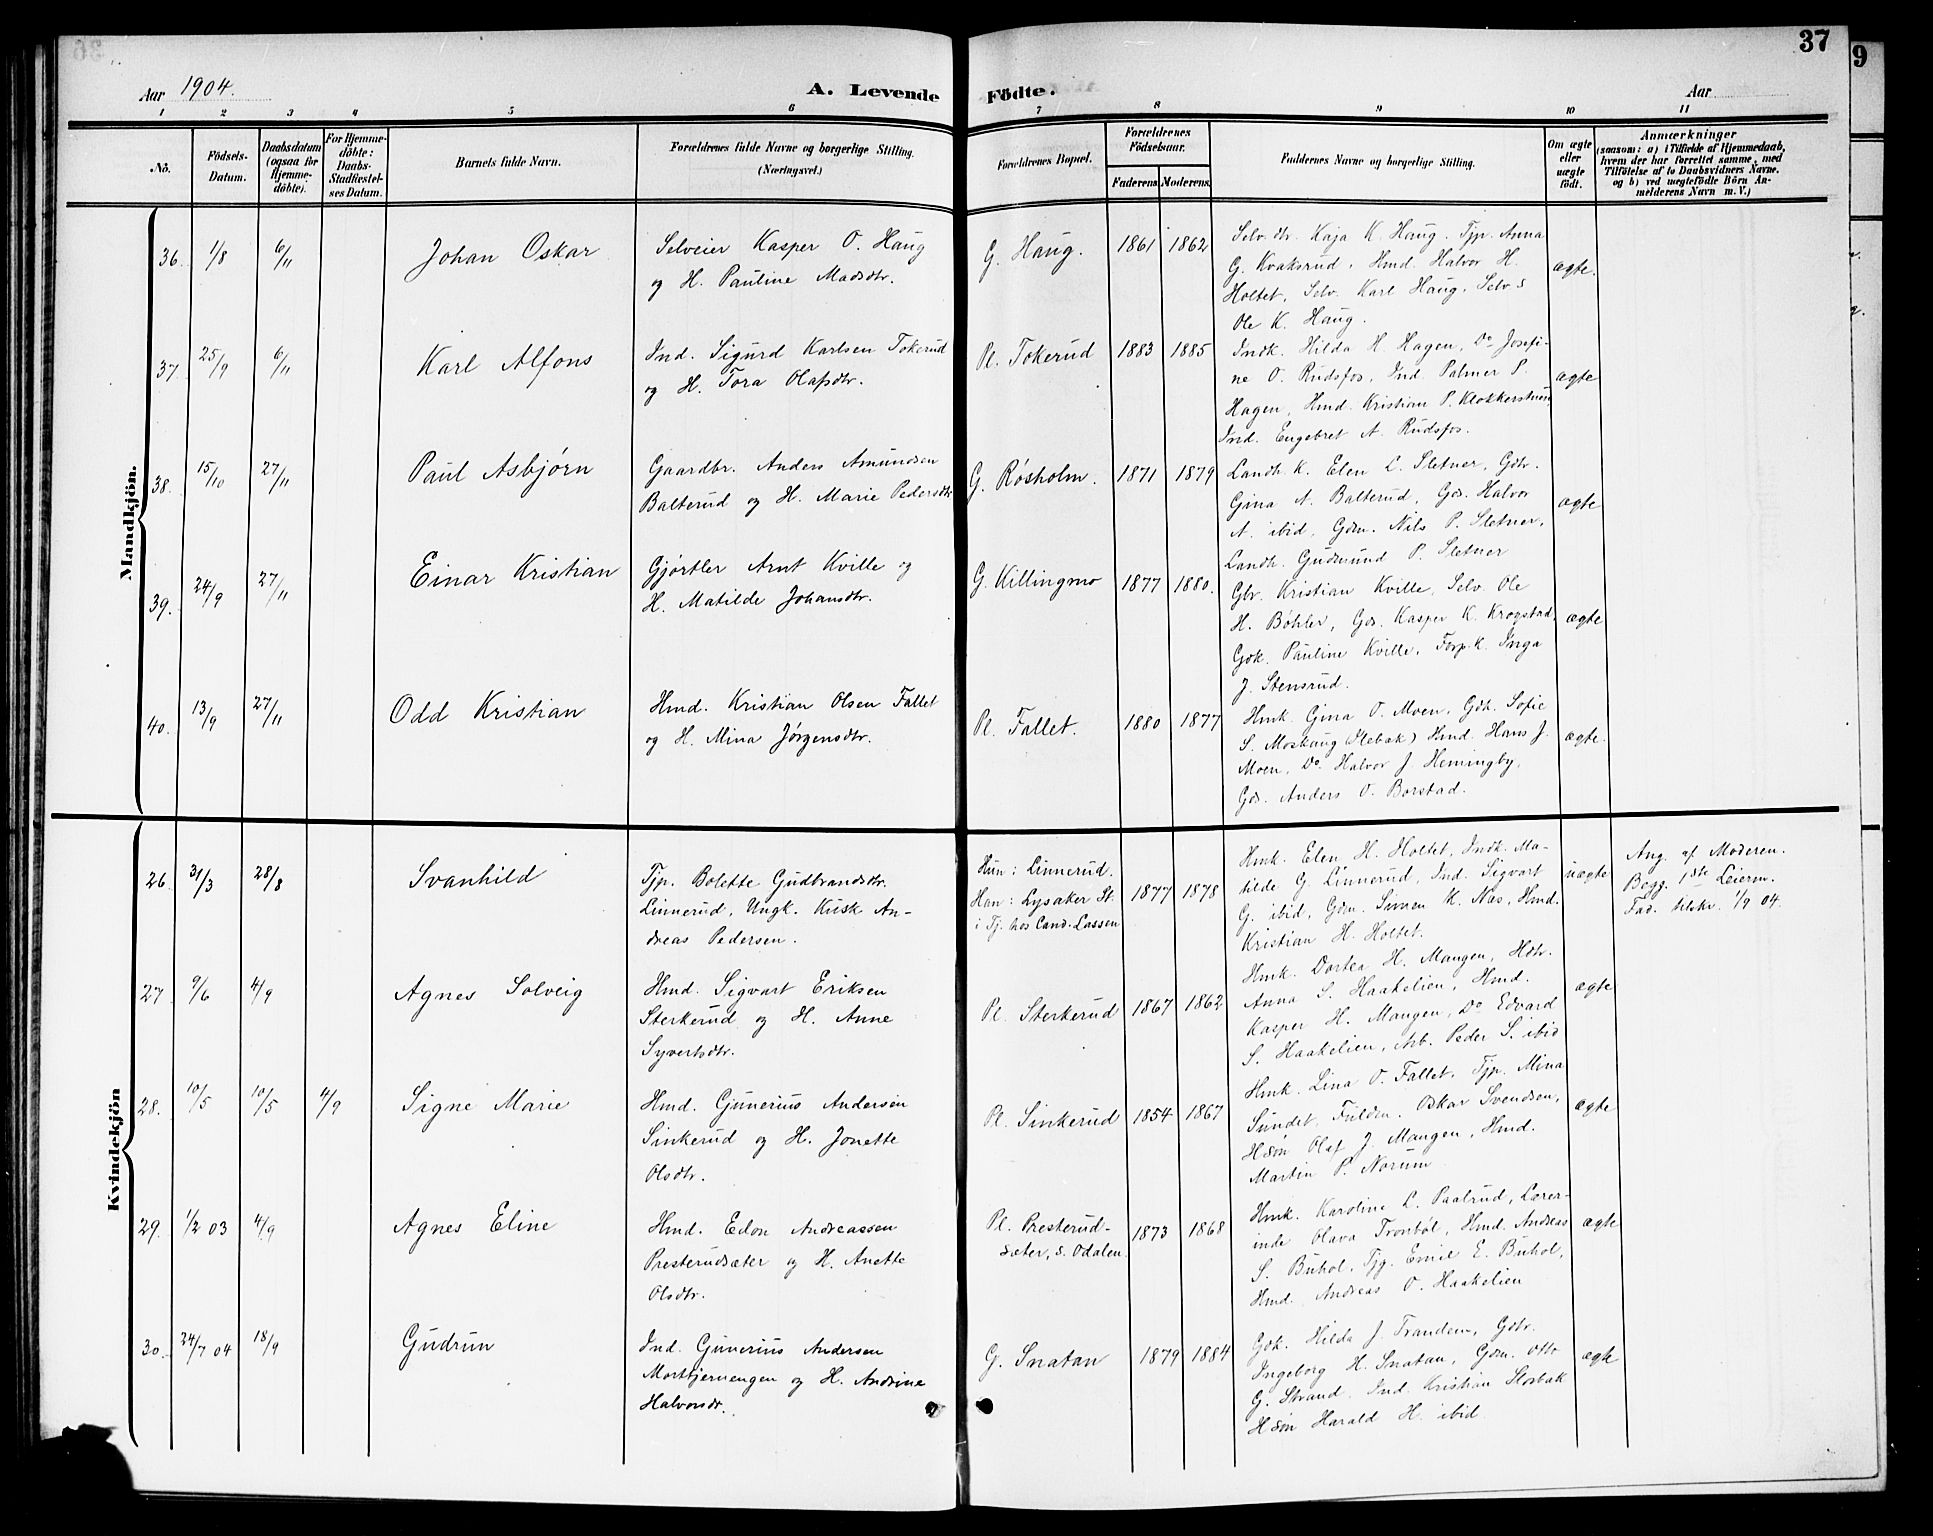 37
9
Aar 1904.
A. Levende Födte.
Aar
1 2 3 4 5 6 7 8 9 10 11
No.
Födsels-Datum.
Daabsdatum (ogsaa for Hjemme-döbte).
For Hjemme-döbte: Daabs-Stadfæstel-ses Datum.
Barnets fulde Navn.
Forældrenes fulde Navne og borgerlige Stilling.
(Næringsvei.)
Forældrenes Bopæl.
Forældrenes Födselsaar.
Faderens. Moderens.
Faddernes Navne og borgerlige Stilling.
Om ægte eller uægte födt.
Anmærkninger
(saasom: a) i Tilfælde af Hjemmedaab,
hvem der har forrettet samme, med
Tilföielse af to Daabsvidners Navne.
og b) ved uægtefödte Börn An-
melderens Navn m. V.)
Mandkjön.
36. 1/8 6/11 Johan Oskar
Selveier Kasper O. Haug
og H. Pauline Madsdtr.
G. Haug. 1861 1862
Selv.dtr. Kaja K. Haug. Tjp. Anna
G. Kvaksrud, Hmd. Halvor H.
Holtet, Selv. Karl Haug, Selv.s
Ole K. Haug.
ægte.
37. 25/9 6/11 Karl Alfons
Ind. Sigurd Karlsen Tokerud
og H. Tora Olafsdtr.
Pl. Tokerud 1883 1885
Indk. Hilda H. Hagen, Do Josefi-
ne O. Rudsfos, Ind. Palmer P.
Hagen, Hmd. Kristian P. Klokkerstuen
Ind. Engebret A. Rudsfos.
ægte
38. 15/10 27/11 Paul Asbjørn
Gaardbr. Anders Amundsen
Balterud og H. Marie Pedersdtr.
G. Røsholm. 1871 1879
Landh.K. Elen L. Sletner, Gdtr.
Gina A. Balterud, Gds. Halvor
A. ibid, Gdm. Nils P. Sletner,
Landh. Gudmund P. Sletner
ægte
39. 24/9 27/11 Einar Kristian
Gjørtler Arnt Kville og
H. Matilde Johansdtr.
G. Killingmo 1877 1880.
Gbr. Kristian Kville, Selv. Ole
H. Bøhler, Gds. Kasper K. Krogstad,
Gdk. Pauline Kville, Forp.k. Inga
J. Stensrud.
ægte
40. 13/9 27/11 Odd Kristian
Hmd. Kristian Olsen Fallet
og H. Mina Jørgensdtr.
Pl. Fallet. 1880 1877
Hmk. Gina O. Moen, Gdk. Sofie
S. Moshaug (Hebak) Hmd. Hans J.
Moen, Do. Halvor J. Hemingby,
Gds. Anders O. Borstad.
ægte.
Kvindekjön
26. 31/3 28/8 Svanhild
Tjp. Bolette Gudbrandsdtr.
Linnerud, Ungk. Kusk An-
dreas Pedersen.
Hun: Linnerud.
Han: Lysaker St.
i Tj. hos Cand. Lassen
1877 1878
Hmk. Elen H. Holtet, Indk. Ma-
tilde G. Linnerud, Ind. Sigvart
G. ibid, Gdm. Simen K. Næs, Hmd.
Kristian H. Holtet.
uægte
Ang. af Moderen.
Begg. 1ste Leierm.
Fad. tilskr. 1/9 04.
27 9/6 4/9 Agnes Solveig
Hmd. Sigvart Eriksen
Sterkerud og H. Anne
Syvertsdtr.
Pl. Sterkerud 1867 1862
Hmk. Dortea H. Mangen, Hdtr.
Anna S. Haakelien, Hmd.
Kasper H. Mangen, Do Edvard
S. Haakelien, Arb. Peder S. ibid
ægte
28. 10/5 10/5 4/9 Signe Marie
Hmd. Gunerius Andersen
Sinkerud og H. Jonette
Olsdtr.
Pl. Sinkerud 1854 1867
Hmk. Lina O. Fallet, Tjp. Mina
Sundet, Fuldm. Oskar Svendsen,
Hsøn Olaf J. Mangen, Hmd.
Martin P. Norum
ægte
29. 1/2 03 4/9 Agnes Eline
Hmd. Edon Andreassen
Presterudsæter og H. Anette
Olsdtr.
Pl. Presterud-
sæter, S. Odalen.
1873 1868
Hmk. Karoline L. Paalrud, Lærer-
inde Olava Tronbøl, Hmd. Andreas
S. Buhol, Tjg. Emil E. Buhol,
Hmd. Andreas O. Haakelien
ægte
30. 24/7 04 18/9 Gudrun
Ind. Gunerius Andersen
Mortkjernengen og H. Andrine
Halvorsdtr.
G. Snatan 1879 1884
Gdk. Hilda J. Trandem, Gdtr.
Ingeborg H. Snatan, Gdm. Otto
G. Strand, Ind. Kristian Storbak
Hsøn Harald H. ibid.
ægte